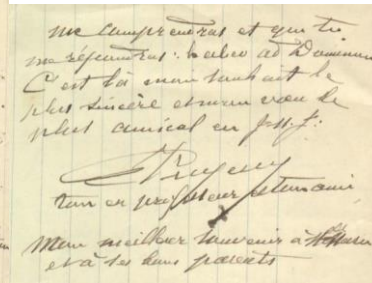 me comprendras et que tu
me répondras : habeo ad Dominum
C'est là mon souhait le
plus sincère et mon vœu le
plus amical en
ton ex professeur et ton ami
Mon meilleur souvenir à
et à tes bons parents